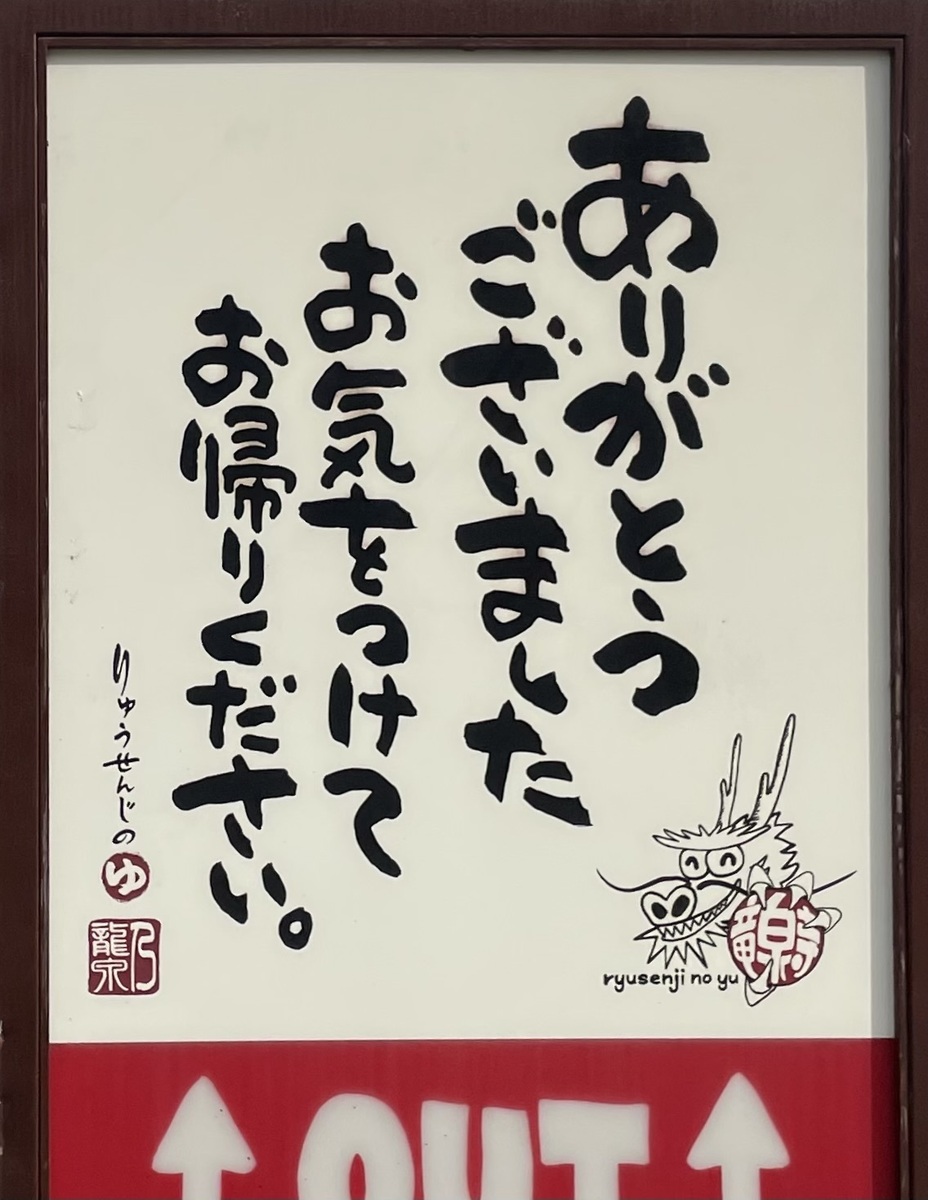 ありがとう
ございました
お気をつけて
お帰りください。
りゅうせんじの
ゆ
乃
龍泉
ryusenji no yu
OUT